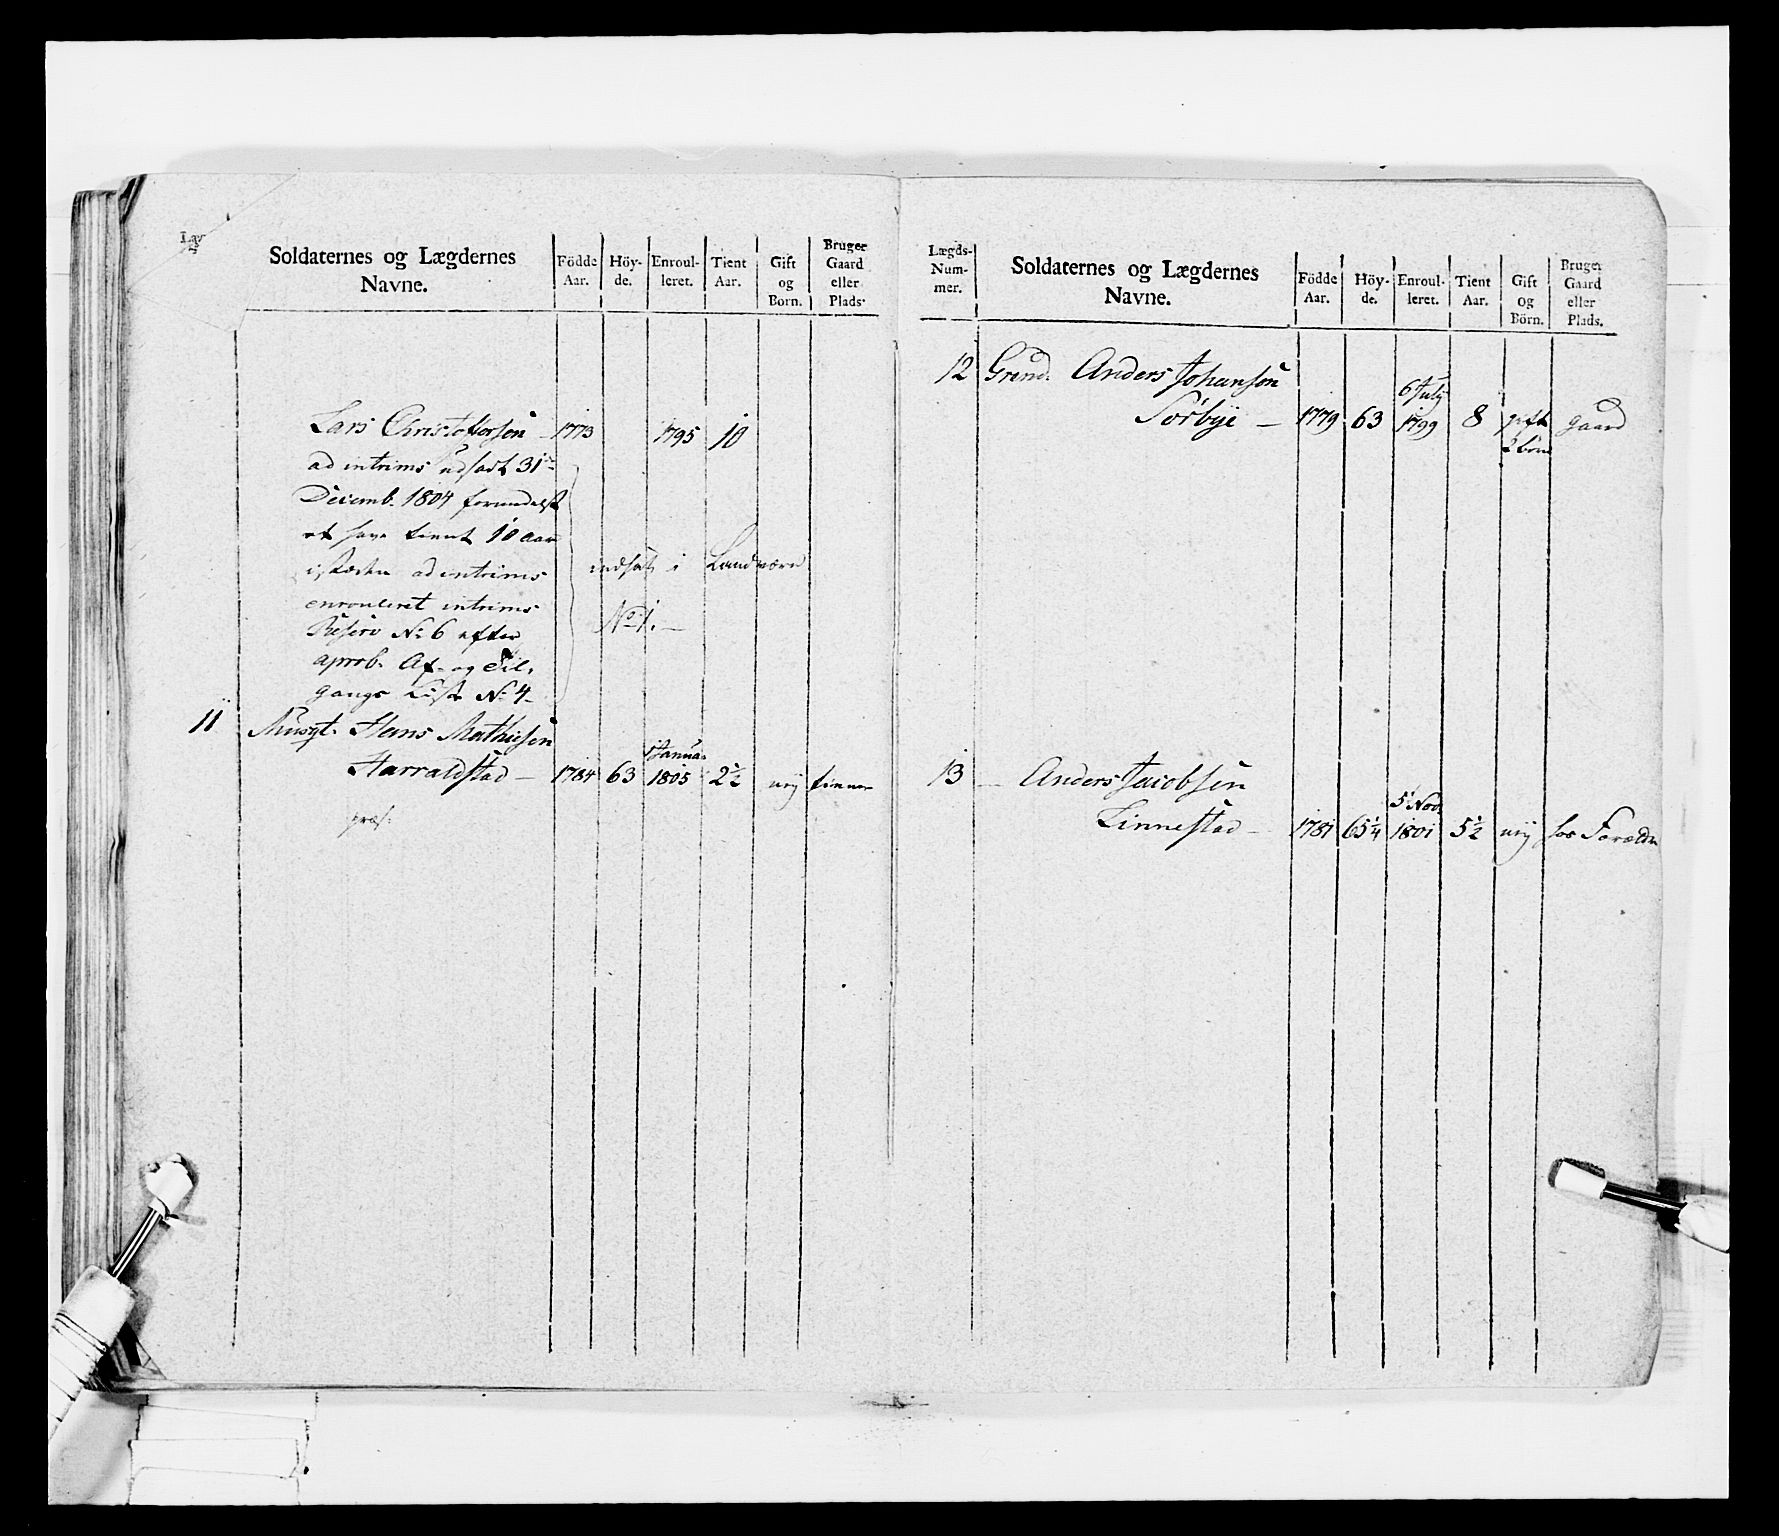 Soldaternes og Lægdernes
Navne.
Födde
Aar.
Höy-
de.
Enroul-
leret.
Tient
Aar.
Gift
og
Born.
Bruger
Gaard
eller
Plads.
Lars Christofersen - 1773 1795 10
ad intrims udsadt 31te
Decemb. 1804 formedelst
at have tient 10 Aar
i stæden ad intrims
enrouleret intrims
Reserv No 6 efter
aprob. Af- og Til,
gangs Liste No 4
indsat i Landværn
No 1. -
11 Musqt. Hans Mathiesen
Harraldstad - 1784 63 1 Janua 1805 2 1/2 uy tienner
præs.
Lægds-
Num-
mer.
Soldaternes og Lægdernes
Navne.
Födde
Aar.
Höy-
de.
Enroul-
leret.
Tient
Aar.
Gift
og
Börn.
Bruger
Gaard
eller
Plads.
12 Grend. Anders Johansen
Sörbye - 1779 63 6 July 1799 8 gift 2 börn gaard
13 - Anders Jacobsen
Linnestad - 1781 65 1/4 5 Nov. 1801 5 1/2 uy hos Forældre